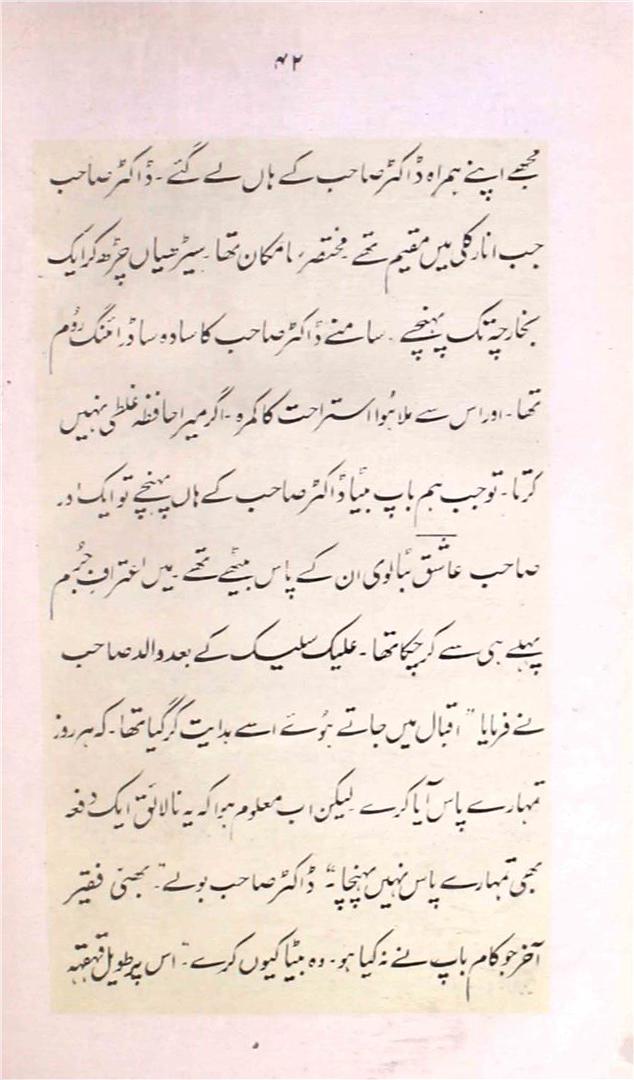 ۴۲
مجھے اپنے ہمراہ ڈاکٹر صاحب کے ہاں لے گئے ۔ ڈاکٹر صاحب
جب انارکلی میں مقیم تھے ۔ مختصر سا مکان تھا ۔ سیڑھیاں چڑھ کر ایک
بخارچہ تک پہنچے ۔ سامنے ڈاکٹر صاحب کا سادہ سا ڈرائنگ روُم
تھا ۔ اور اس سے ملا ہُوا استراحت کا کمرہ ۔ اگر میرا حافظہ غلطی نہیں
کرتا ۔ تو جب ہم باپ بیٹا ڈاکٹر صاحب کے ہاں پہنچے تو ایک اور
صاحب عاشق بٹالوی ان کے پاس بیٹھے تھے ۔ میں اعترافِ جُرم
پہلے ہی سے کر چکا تھا ۔ علیک سلیک کے بعد والد صاحب
نے فرمایا " اقبال میں جاتے ہُوئے اسے ہدایت کر گیا تھا ۔ کہ ہر روز
تمہارے پاس آیا کرے لیکن اب معلوم ہوا کہ یہ نالائق ایک دفعہ
بھی تمہارے پاس نہیں پہنچا ۔" ڈاکٹر صاحب بولے ۔" بھئی فقیر
آخر جو کام باپ نے نہ کیا ہو ۔ وہ بیٹا کیوں کرے ۔" اس پر طویل قہقہہ